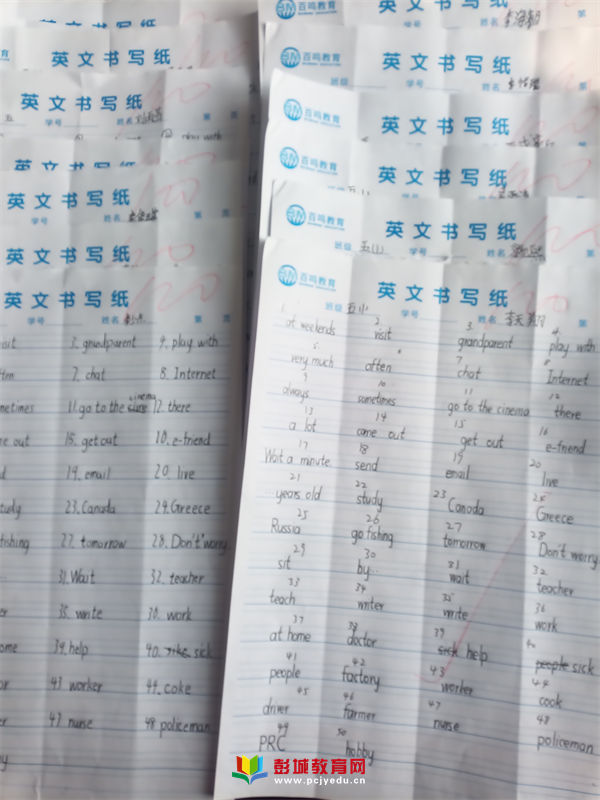 英文书写纸
英文书写纸
学号 姓名 第 页
play with
英文书写纸
英文书写纸
学号 姓名 第 页
英文书写纸
英文书写纸
学号 姓名 第 页
3. grandparent 4. play with
7. chat 8. Internet
11. go to the cinema 12. there
come out 15. get out 16. e-friend
19. email 20. live
study 23. Canada 24. Greece
fishing 27. tomorrow 28. Don't worry
31. Wait 32. teacher
35. write 36. work
home 39. help 40. sick
43 worker 44. coke
47. nurse 48 policeman
百鸣教育
姓名
百鸣教育 英文书写纸
姓名
百鸣教育 英文书写纸
百鸣教育 英文书写纸
百鸣教育 英文书写纸
班级 五(1) 学号 姓名 第
百鸣教育 英文书写纸
班级 五(1) 学号 姓名 李天翔 第
1 at weekends 2 visit 3 grandparent 4 play with
5 very much 6 often 7 chat 8 Internet
9 always 10 sometimes 11 go to the cinema 12 there
13 a lot 14 come out 15 get out 16 e-friend
17 Wait a minute 18 send 19 email 20 live
21 years old 22 study 23 Canada 24 Greece
25 Russia 26 go fishing 27 tomorrow 28 Don't worry
29 sit 30 by... 31 wait 32 teacher
33 teach 34 writer 35 write 36 work
37 at home 38 doctor 39 help 40 sick
41 people 42 factory 43 worker 44 cook
45 driver 46 farmer 47 nurse 48 policeman
49 PRC 50 hobby
彭城教育网
www.pcjyedu.cn